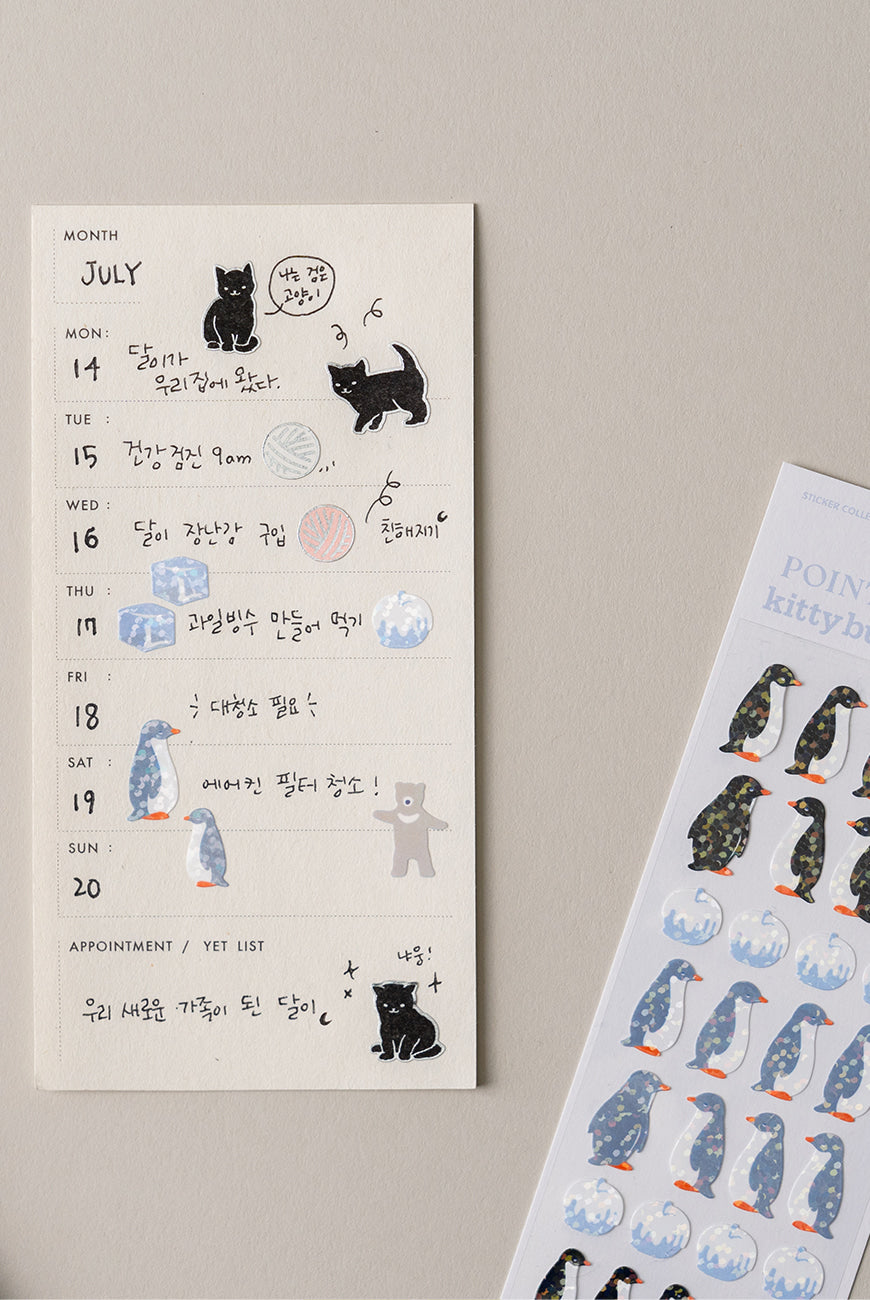 MONTH
JULY
나는 검은
고양이
MON:
14 달이가
우리집에 왔다.
TUE :
15 건강검진 9am
WED :
16 달이 장난감 구입 친해지기
THU :
17 과일빙수 만들어 먹기
FRI :
18 대청소 필요
SAT :
19 에어컨 필터 청소!
SUN :
20
APPOINTMENT / YET LIST
냐웅!
우리 새로운 가족이 된 달이
STICKER
POINT
kitty